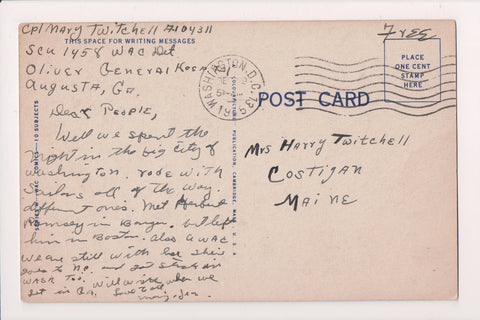 Cpl Mary Twitchell A104311
THIS SPACE FOR WRITING MESSAGES
SCU 1458 WAC Det
Oliver General Hosp
Augusta, Ga.
Dear People,
Well we spent the
night in the big city of
Washington. rode with
Sailors all of the way.
different ones. Met
Rumsey in Bangor, but left
him in Boston. Also a WAC
we are still with her she's
goes to and got stuck in
Wash Too. Will write when we
get in Ga. Love to all
WASHINGTON, D.C. 13
Free
PLACE
ONE CENT
STAMP
HERE
POST CARD
Mrs Harry Twitchell
Costigan
Maine